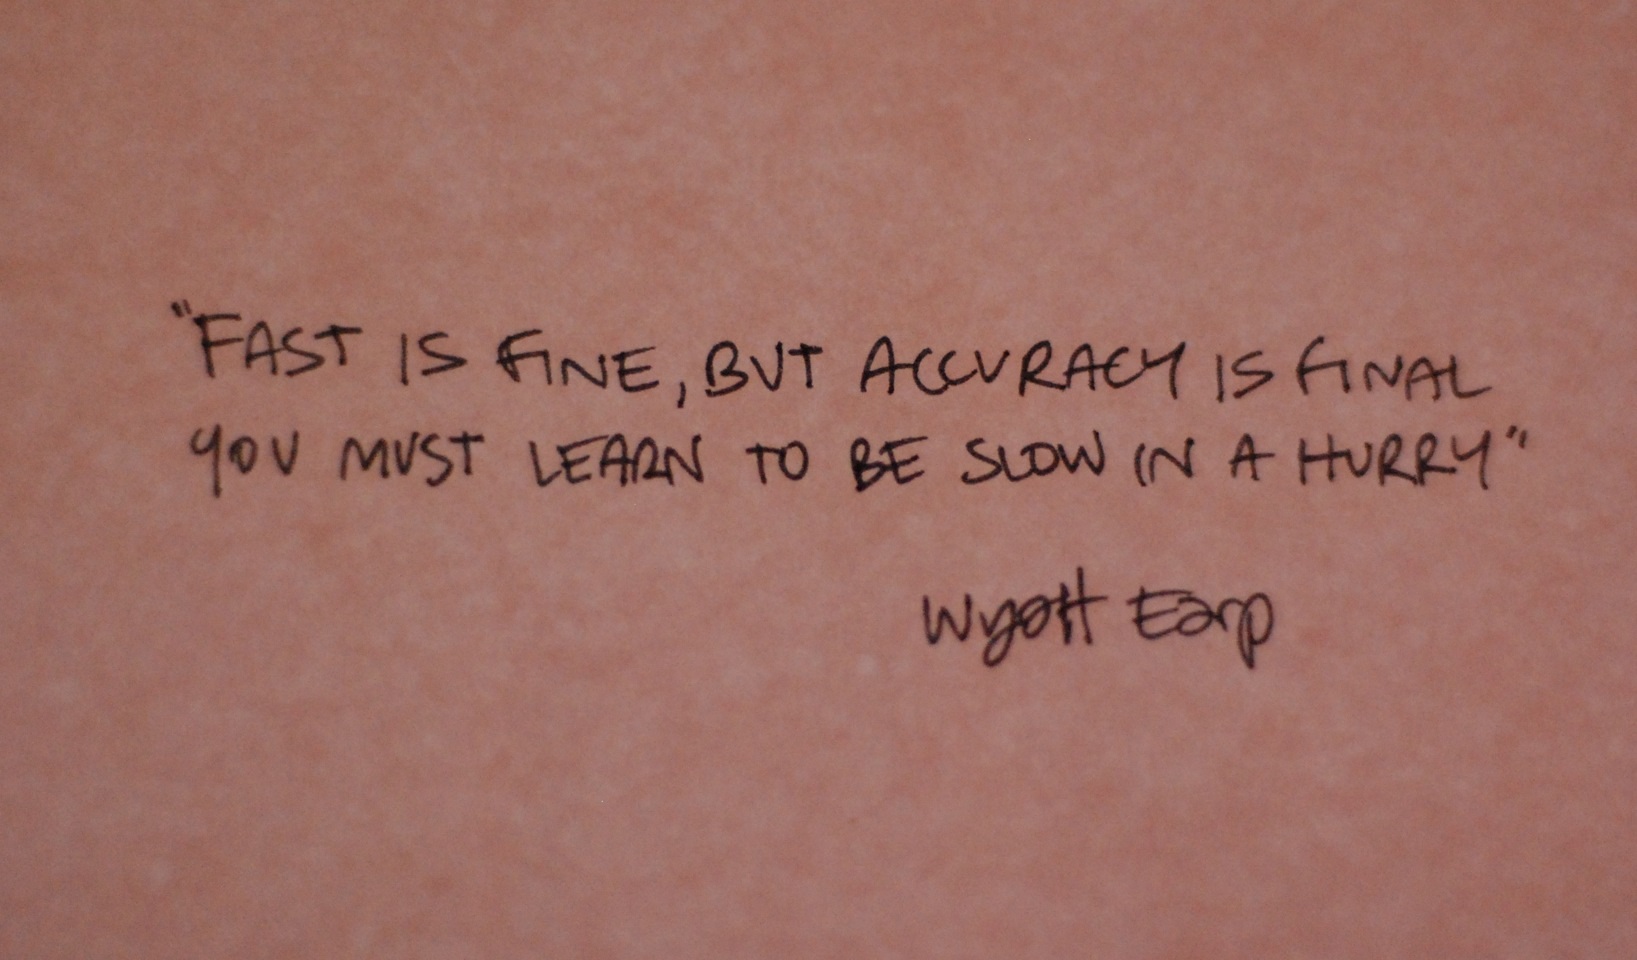 "FAST IS FINE, BUT ACCURACY IS FINAL
YOU MUST LEARN TO BE SLOW IN A HURRY"
Wyatt Earp